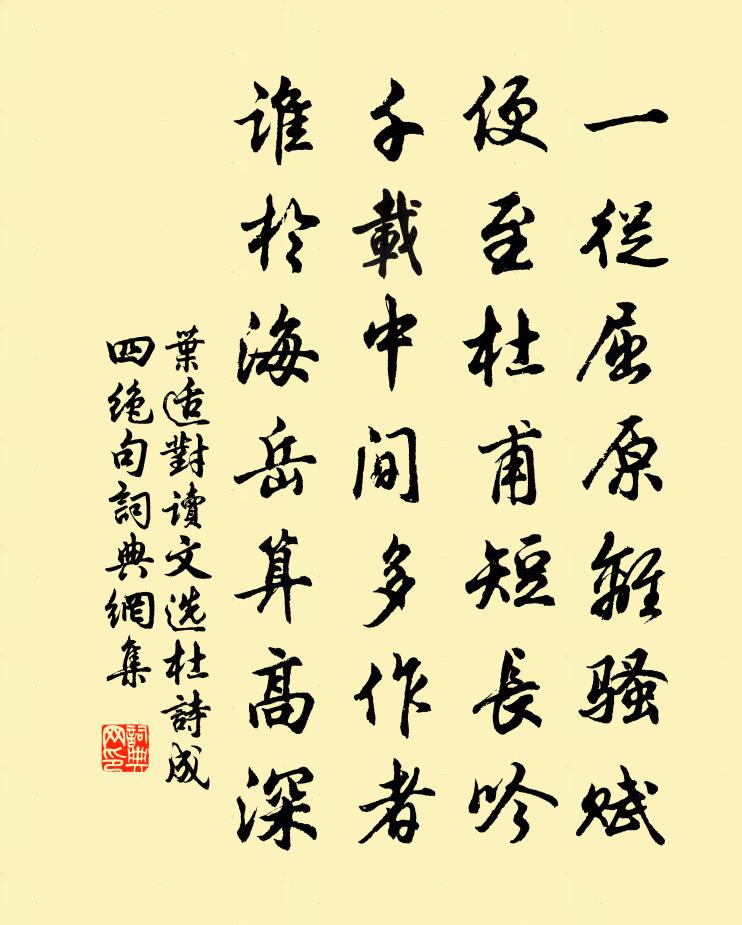 一從屈原離騷賦
便至杜甫短長吟
千載中間多作者
誰於海岳算高深
葉适對读文选杜詩成
四絶句詞典網集
詞典网印